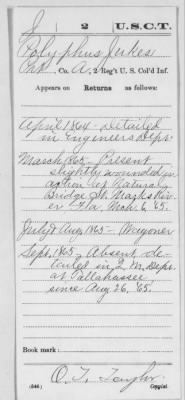 J 2 U.S.C.T.
Polyphus Jerkes
Pvt., Co. A, 2 Reg't U. S. Col'd Inf.
Appears on Returns as follows:
April 1864 - Detailed
in Engineers Dept
March 1865 - Present
slightly wounded in
action at Natural
Bridge St. Marks Riv-
er Fla. Mch. 6, '65.
July & Aug 1865 - Wagoner
Sept. 1865 - Absent de-
tailed in Q. M. Dept.
at Tallahassee
since Aug 26, '65.
Book mark:
(546) Copyist.